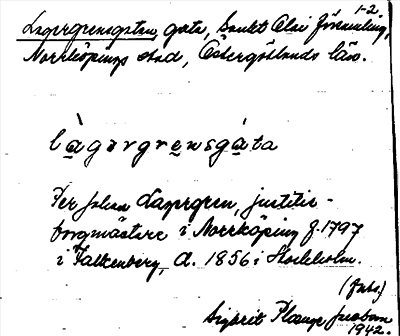 1-2.
Lagergrensgatan, gata, Sankt Olai församling,
Norrköpings stad, Östergötlands län.
làgərgrensgàta
Per Johan Lagergren, justitie-
borgmästare i Norrköping f. 1797
i Falkenberg, d. 1856 i Stockholm.
Sigbrit Plænge Jacobson
1942.